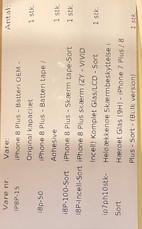 Vare nr Vare: Antal:
iP8P-15 iPhone 8 Plus - Batteri OEM - 1 stk.
Original kapacitet
i8p-50 iPhone 8 Plus - Batteri tape / 1 stk.
Adhesive
i8P-100-Sort iPhone 8 Plus - Skærm tape-Sort 1 stk.
i8P-Incell-Sort iPhone 8 Plus skærm (ZY - VIVID 1 stk.
Incell) Komplet Glas/LCD - Sort
Heldækkende skærmbeskyttelse i 1 stk.
Sort Hærdet Glas (9H) - iPhone 7 Plus / 8
Plus - Sort - (Bulk version)